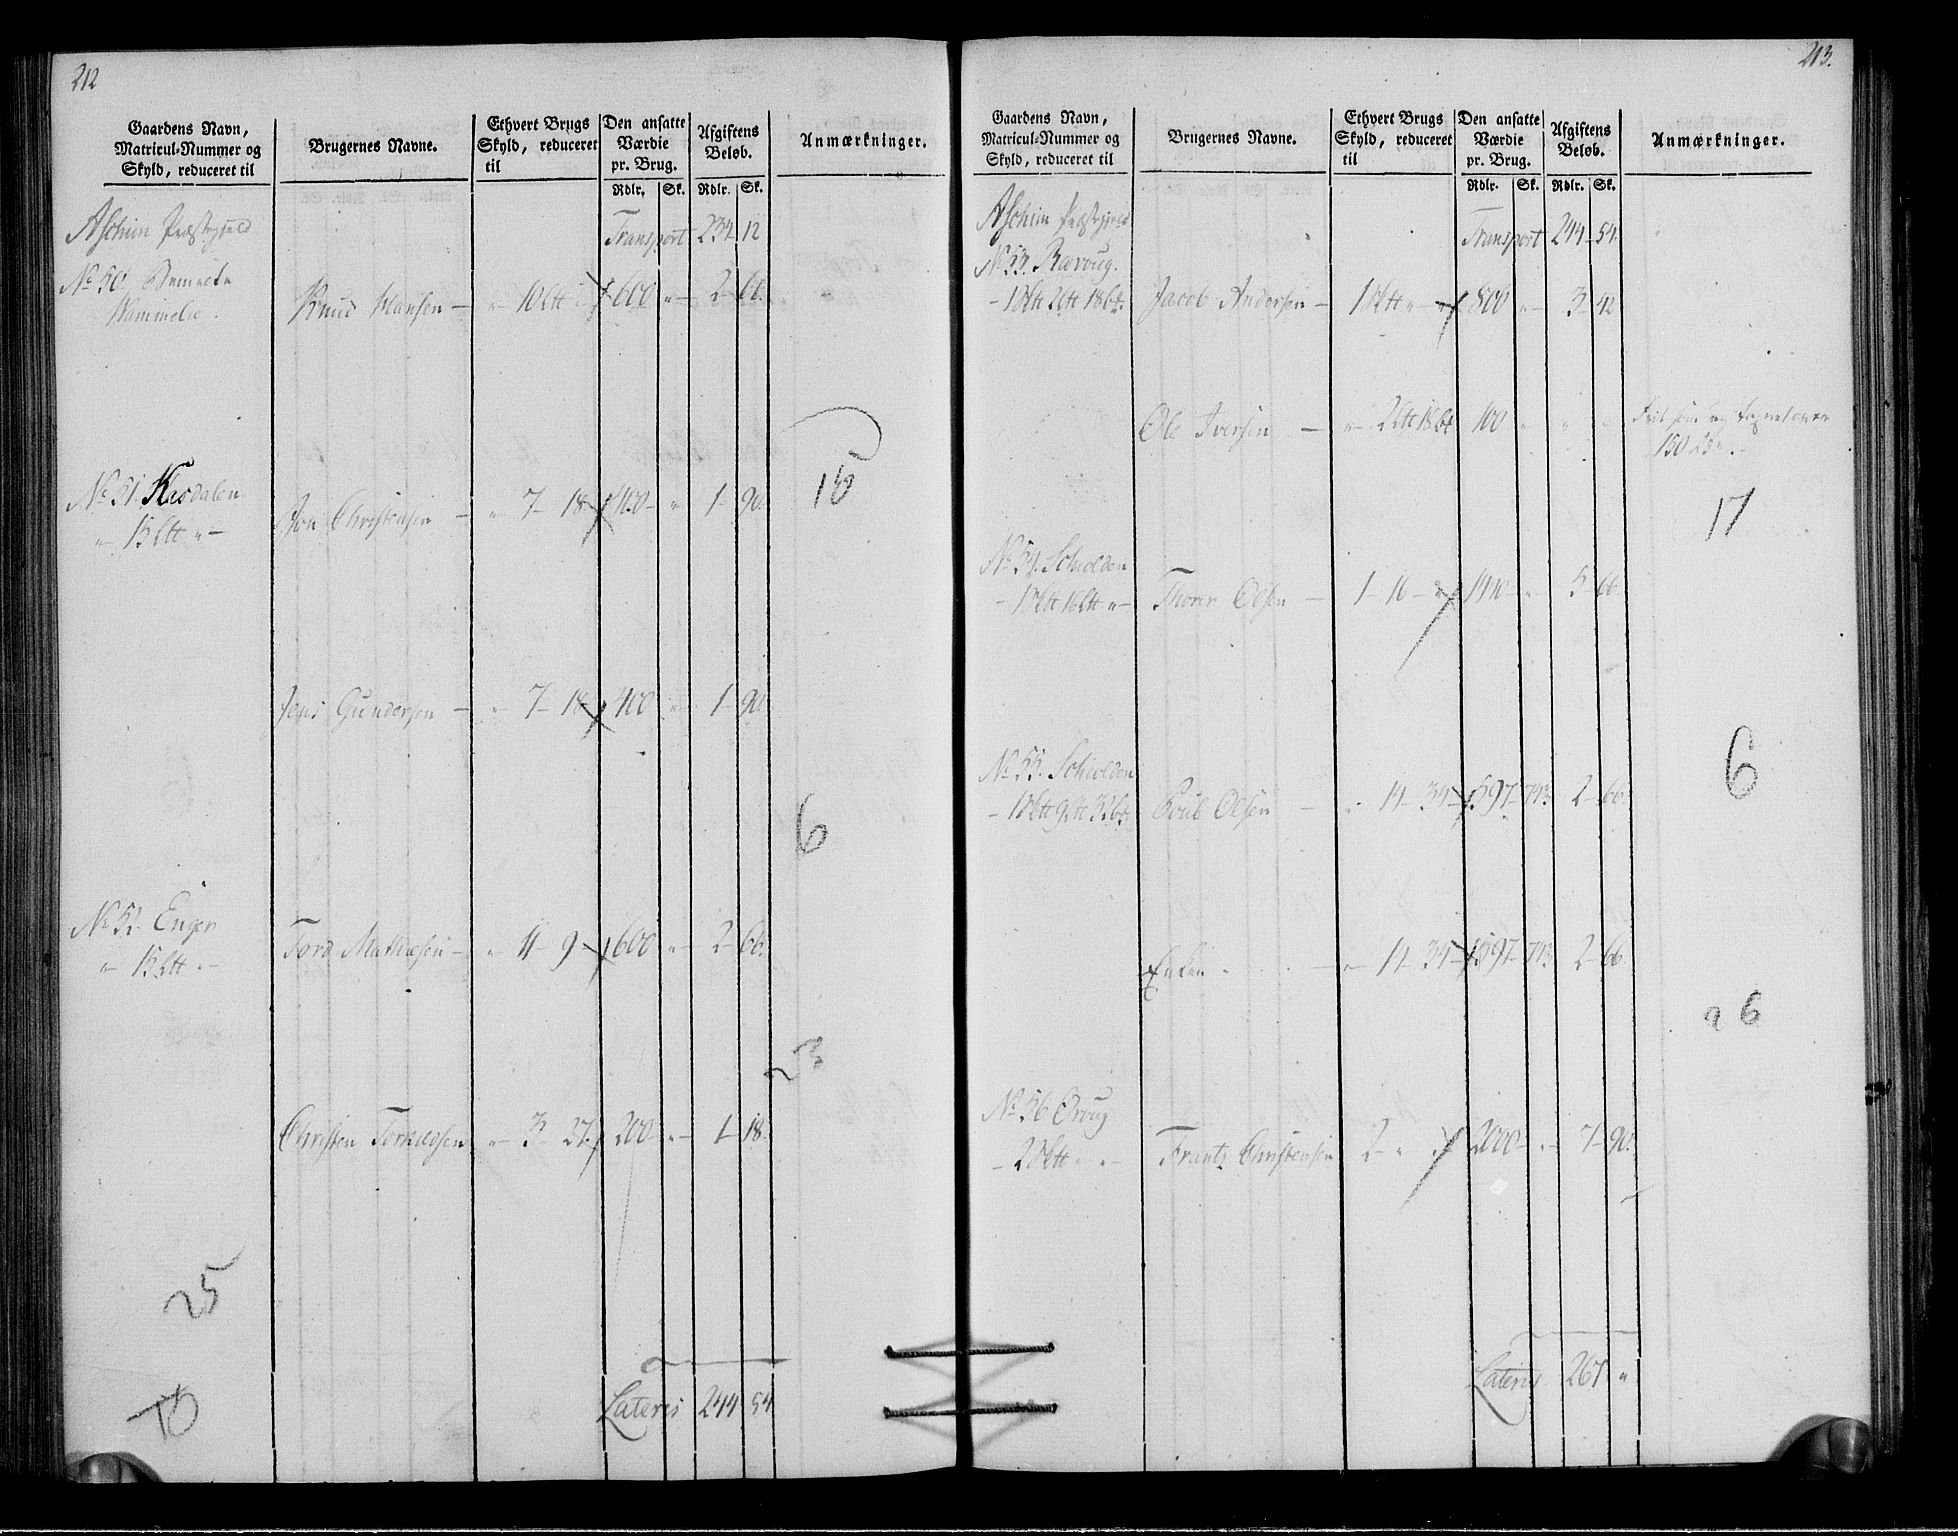 212
Gaardens Navn,
Matricul-Nummer og
Skyld, reduceret til
Brugernes Navne.
Ethvert Brugs
Skyld, reduceret
til
Den ansatte
Værdie
pr. Brug.
Rdlr. Sk.
Afgiftens
Beløb.
Rdlr. Sk.
Anmærkninger.
Aschim Præstegjeld
Transport 234 12
No 50
Knud Hansen - " - 10 Ltt 600 " - 2 - 66.
15
No 51. Kasdalen
" 15 Ltt " -
Jon Christensen - " 7 - 18 - 400 - " 1 - 90.
Jens Gundersen - " 7 - 18 - 400 " 1 - 90
6
No 52 Enger
" 15 Ltt " -
Tord Mathiesen - " 11 - 9 - 600 " - 2 - 66.
23
Christen Torkildsen " - 3 - 27. 200 - " - 1 - 18.
25
10
Lateris 244 54
213.
Gaardens Navn,
Matricul-Nummer og
Skyld, reduceret til
Brugernes Navne.
Ethvert Brugs
Skyld, reduceret
til
Den ansatte
Værdie
pr. Brug.
Rdlr. Sk.
Afgiftens
Beløb.
Rdlr. Sk.
Anmærkninger.
Aschim Præstegjeld
Transport 244 - 54.
No 53.
Jacob Andersen - 800 " - 3 - 42
Ole Iversen - " - 2 Ltt 18 100 " " "
150
17
No 54. Schiolden
Thorer Olsen - 1 - 16 - 1400 - " 5 - 66.
6
No 55. Schiolden
Poul Olsen - " 14 - 34 - 597 - 2 - 66.
Enken - " 14 - 34 - 597 - 2 - 66
26
No 56 Ovoug
Frantz Christensen 2 - " 2000 - " - 7 - 90.
Lateris 267 "